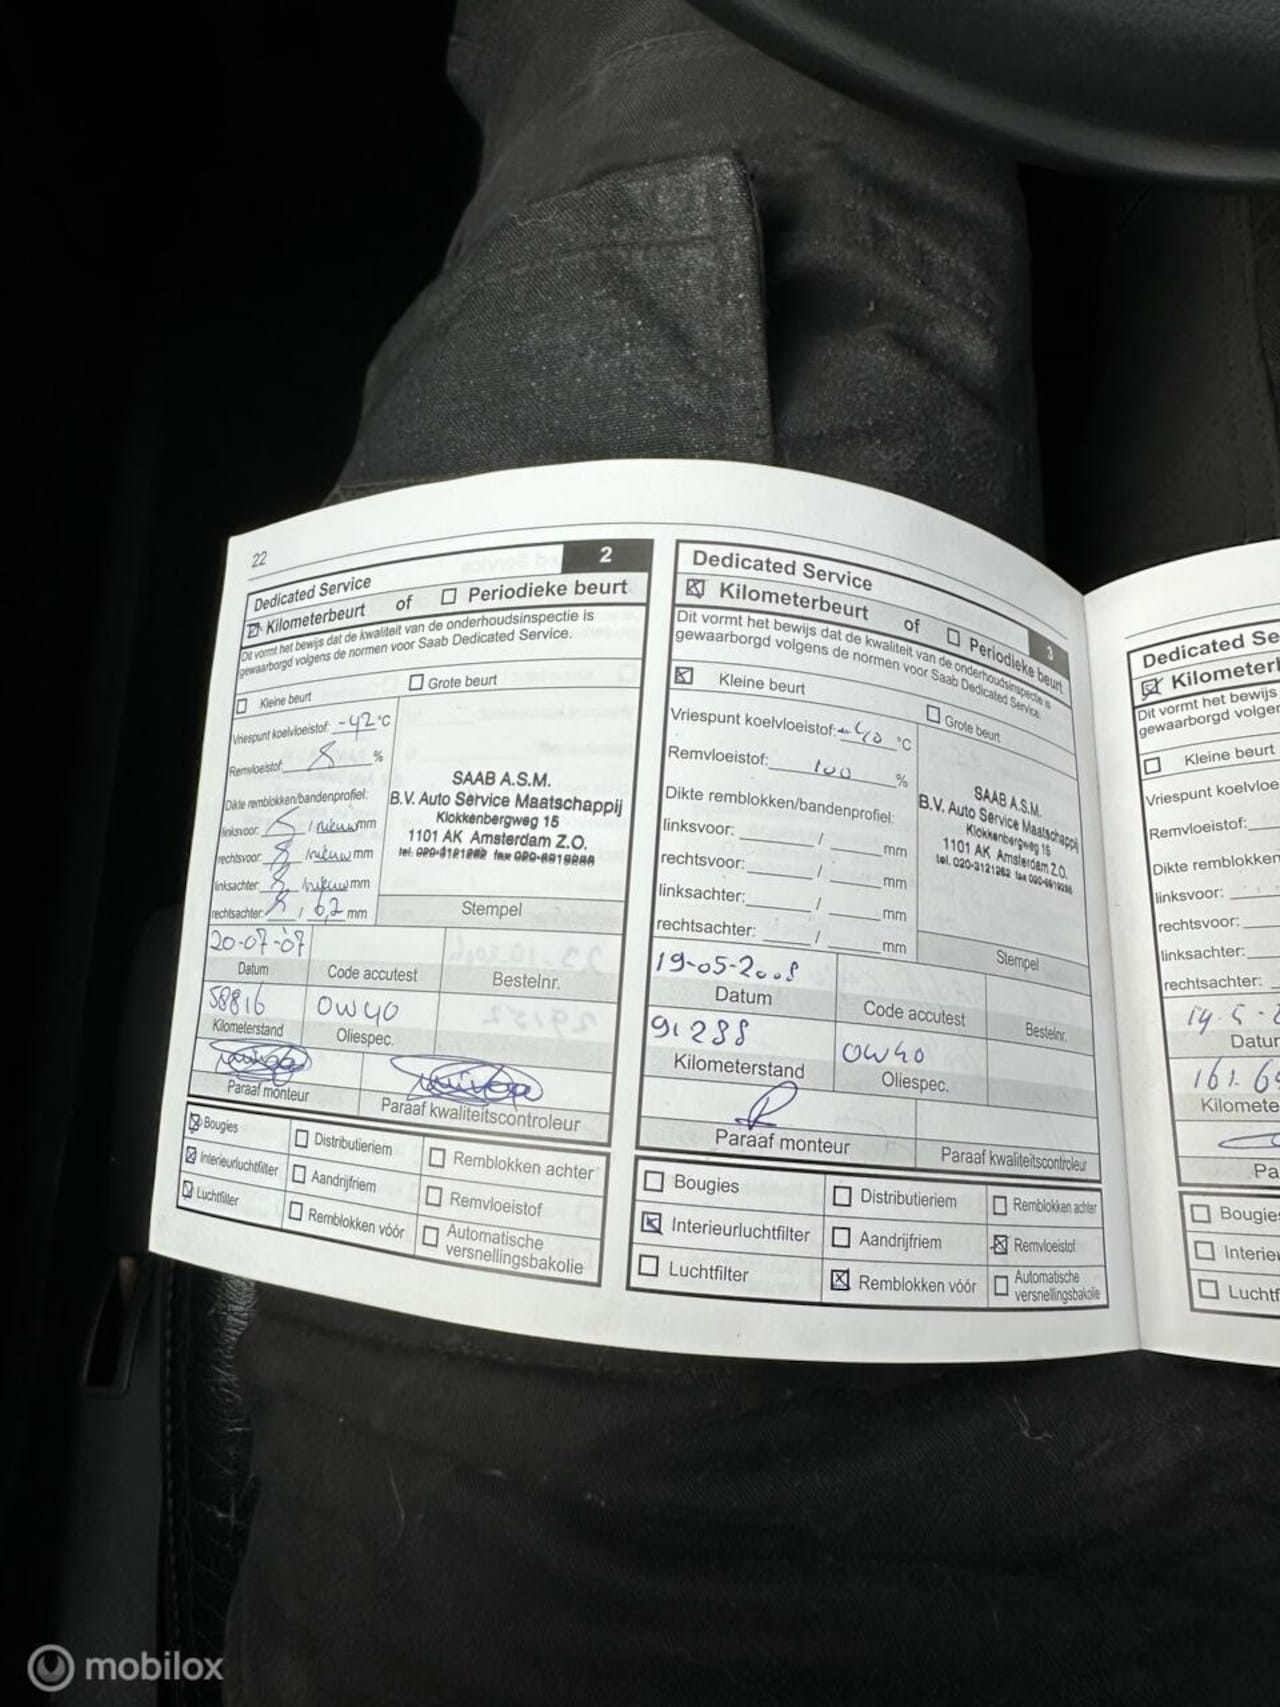 22
2
Dedicated Service
Kilometerbeurt of Periodieke beurt
Dit vormt het bewijs dat de kwaliteit van de onderhoudsinspectie is
gewaarborgd volgens de normen voor Saab Dedicated Service.
Kleine beurt Grote beurt
Vriespunt koelvloeistof: -42 °C
Remvloeistof: %
SAAB A.S.M.
B.V. Auto Service Maatschappij
Klokkenbergweg 15
1101 AK Amsterdam Z.O.
tel. 020-3121262 fax 020-6919286
Dikte remblokken/bandenprofiel:
linksvoor: / nieuw mm
rechtsvoor: / nieuw mm
linksachter: / nieuw mm
rechtsachter: / 6,2 mm
Stempel
20-07-'07
Datum Code accutest Bestelnr.
58816 OW40
Kilometerstand Oliespec.
Paraaf monteur Paraaf kwaliteitscontroleur
Bougies Distributieriem Remblokken achter
Interieurluchtfilter Aandrijfriem Remvloeistof
Luchtfilter Remblokken vóór Automatische
versnellingsbakolie
3
Dedicated Service
Kilometerbeurt of Periodieke beurt
Dit vormt het bewijs dat de kwaliteit van de onderhoudsinspectie is
gewaarborgd volgens de normen voor Saab Dedicated Service.
Kleine beurt Grote beurt
Vriespunt koelvloeistof: -40 °C
Remvloeistof: 100 %
SAAB A.S.M.
B.V. Auto Service Maatschappij
Klokkenbergweg 15
1101 AK Amsterdam Z.O.
tel. 020-3121262 fax 020-6919286
Dikte remblokken/bandenprofiel:
linksvoor: / mm
rechtsvoor: / mm
linksachter: / mm
rechtsachter: / mm
Stempel
19-05-2008
Datum Code accutest Bestelnr.
91288 OW40
Kilometerstand Oliespec.
Paraaf monteur Paraaf kwaliteitscontroleur
Bougies Distributieriem Remblokken achter
Interieurluchtfilter Aandrijfriem Remvloeistof
Luchtfilter Remblokken vóór Automatische
versnellingsbakolie
Dedicated Se
Kilometerb
Dit vormt het bewijs
gewaarborgd volger
Kleine beurt
Vriespunt koelvloe
Remvloeistof:
Dikte remblokken
linksvoor:
rechtsvoor:
linksachter:
rechtsachter:
14-5-
Datum
161.6
Kilomete
Pa
Bougies
Interieu
Luchtf
mobilox